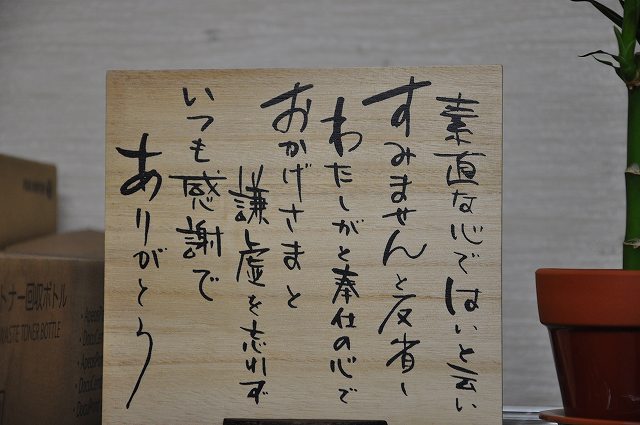 素直な心ではいと云い
すみませんと反省し
わたしがと奉仕の心で
おかげさまと
謙虚を忘れず
いつも感謝で
ありがとう
トナー回収ボトル
WASTE TONER BOTTLE